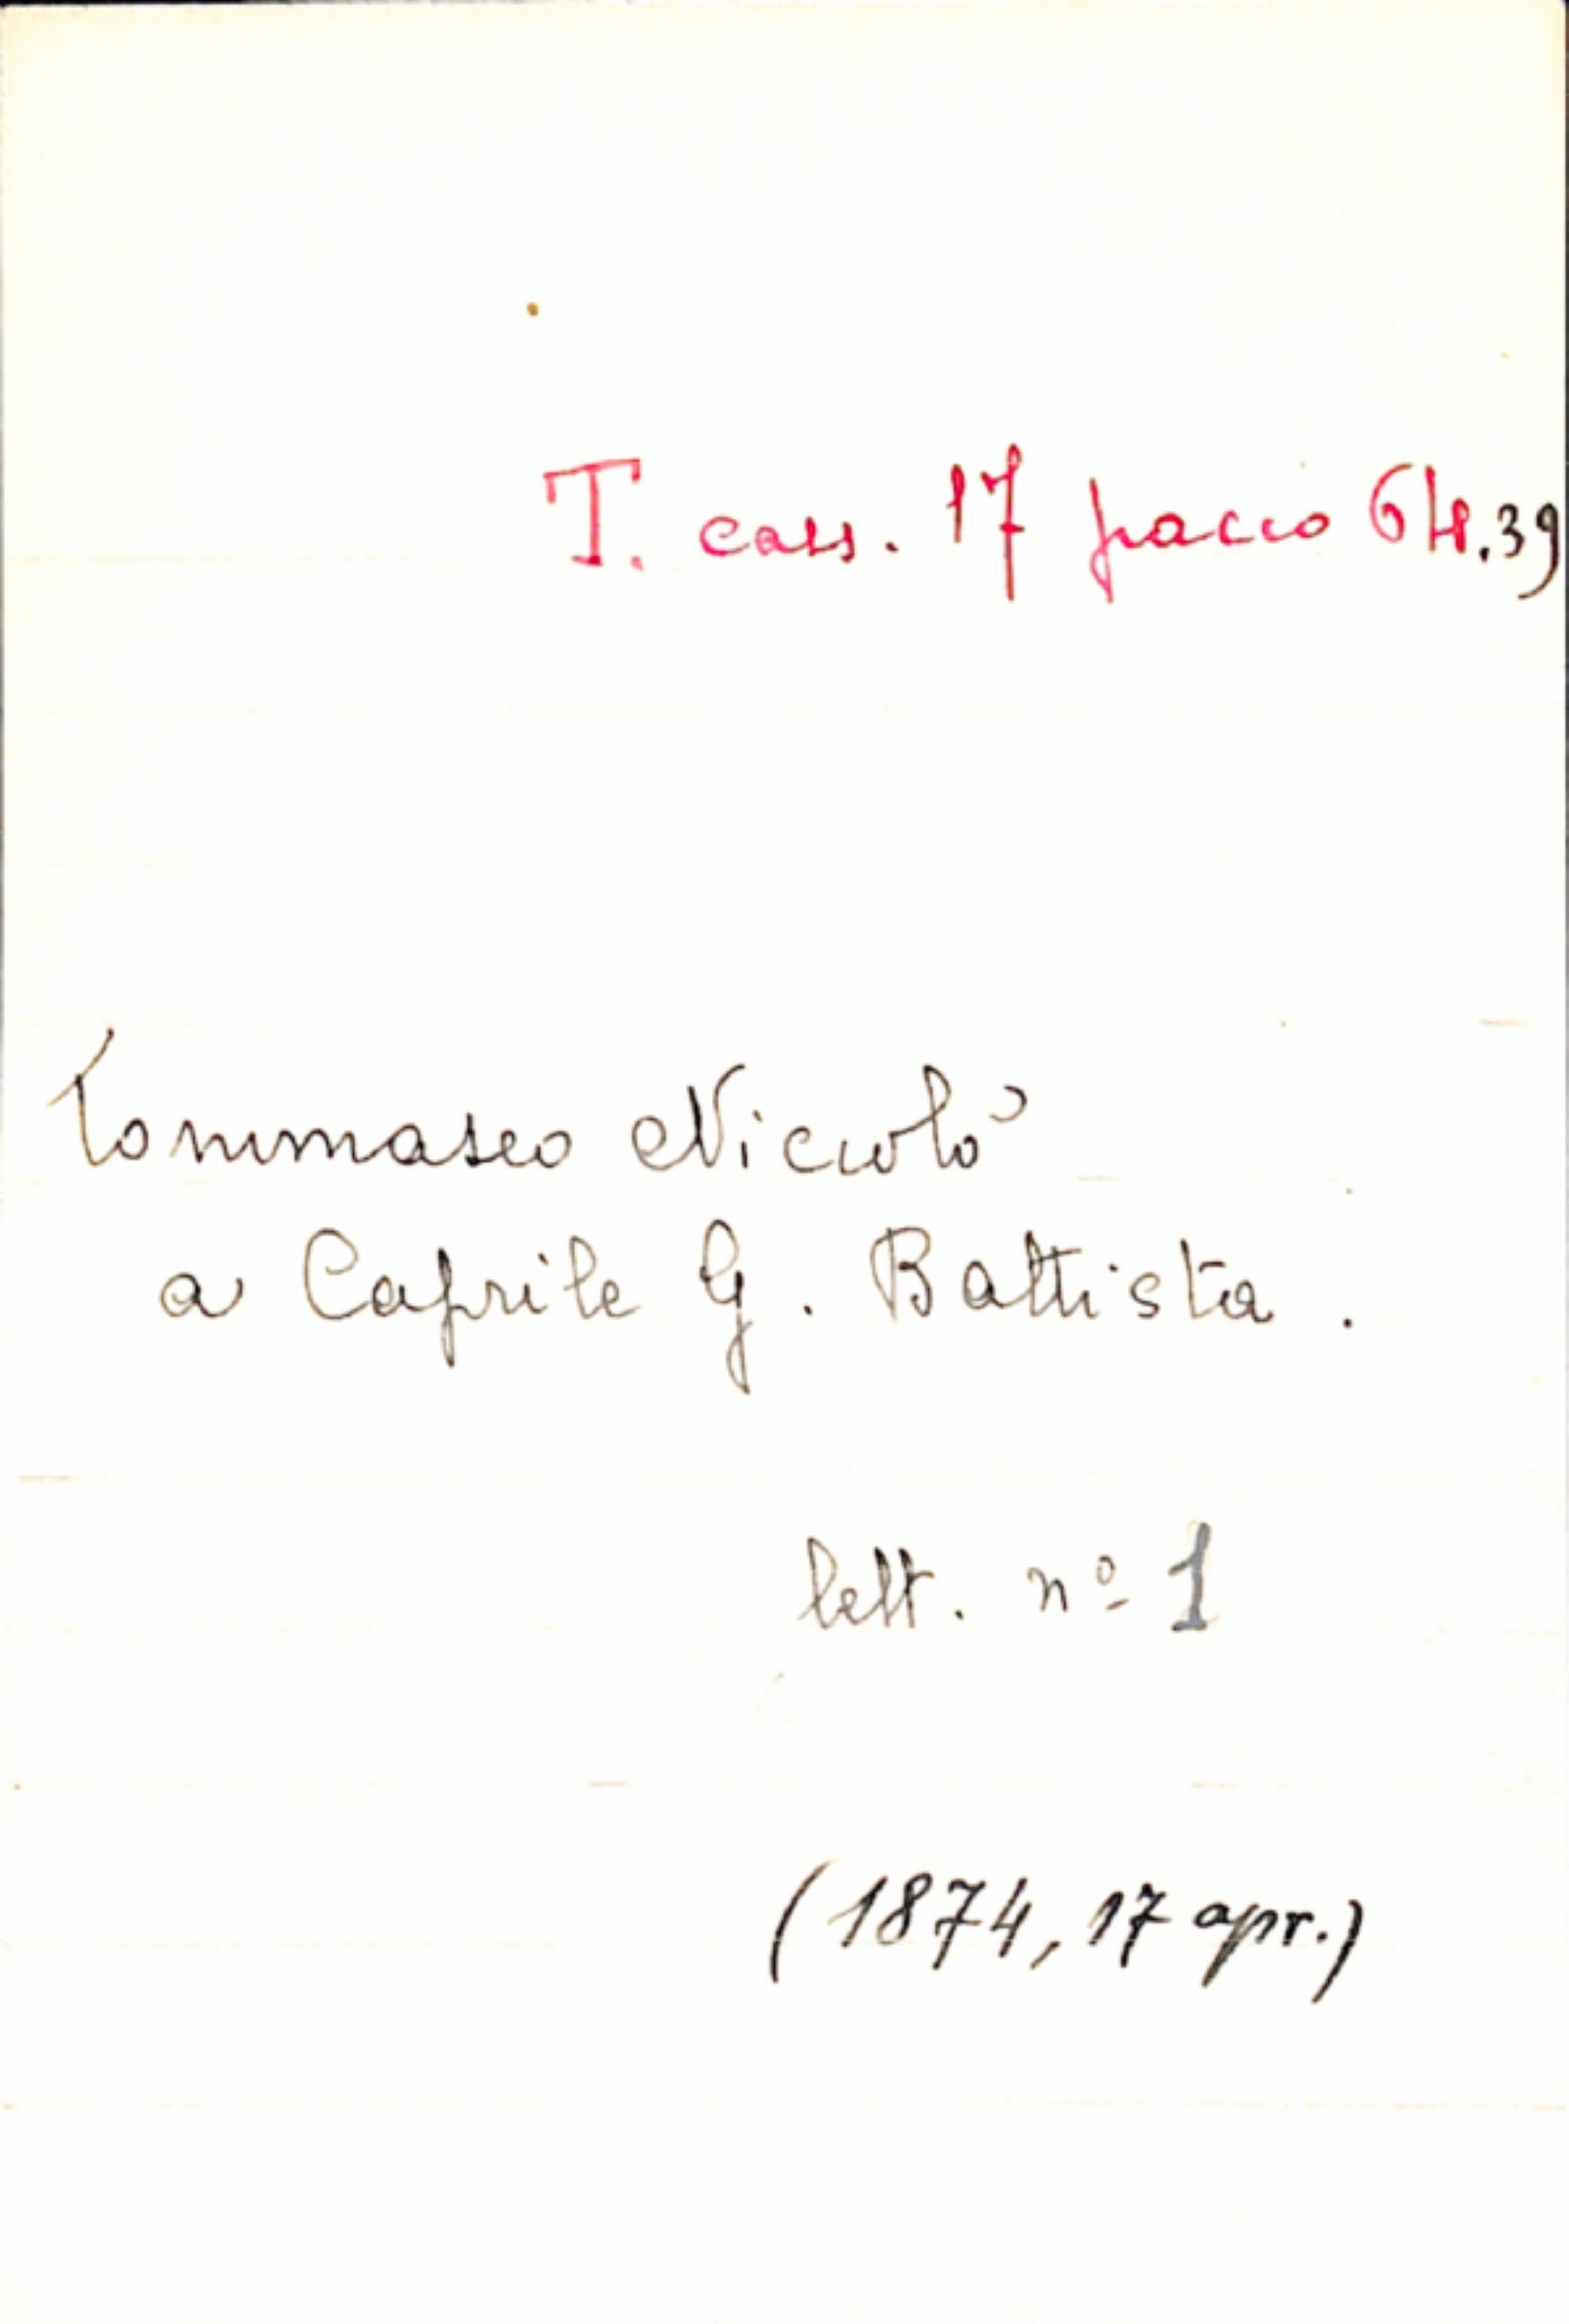 T. cass. 17 pacco 64.39
Tommaseo Niccolò
a Caprile G. Battista.
lett. nº 1
(1874, 17 apr.)